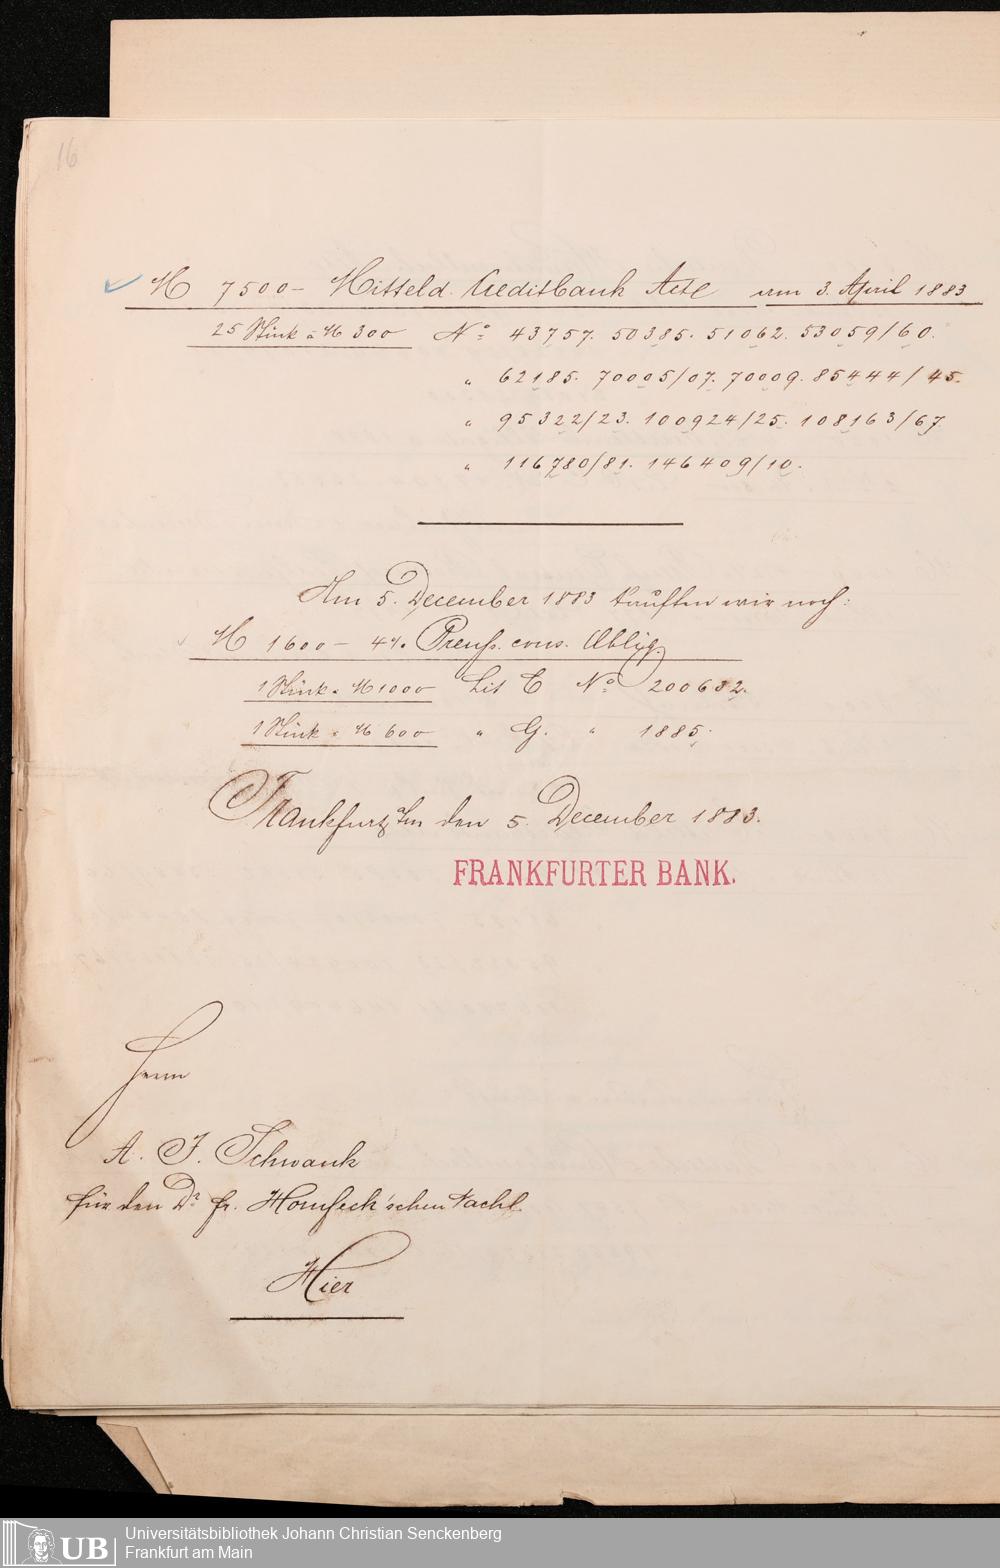 16
M 7500 – Mitteld. Creditbank Act vom 3. April 1883
25 Stück à M 300 No. 43757. 50385. 51062. 53059/60.
" 62185. 70005/07. 70009. 85444/45.
" 95322/23. 100924/25. 108163/67
" 116780/81. 146409/10.
Am 5. December 1883 kauften wir noch:
M 1600 – 4% Preuß. cons. Oblig.
1 Stück à M 1000 Lit C No. 200632.
1 Stück à M 600 " G. " 1885.
Frankfurt a/m den 5. December 1883.
FRANKFURTER BANK.
Herrn
A. F. Schwank
für den Dr. fr. Homfeck'schen Nachl.
Hier
UB
Universitätsbibliothek Johann Christian Senckenberg
Frankfurt am Main